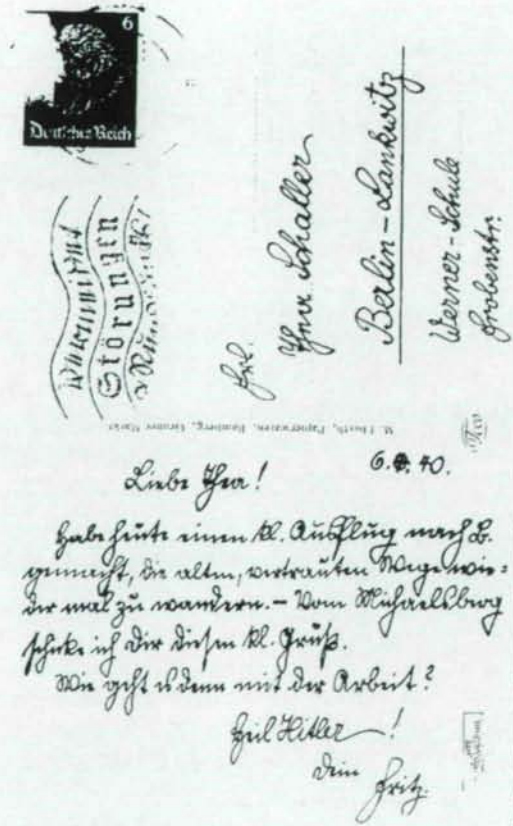 6
Deutsches Reich
Störungen
Frl.
Thea Schaller
Berlin-Lankwitz
Werner-Schule
Frobenstr.
Papierwaren, Bamberg, Grüner Markt
6. 40.
Liebe Thea!
Habe heute einen kl. Ausflug nach B.
gemacht, die alten, vertrauten Wege wie=
der mal zu wandern. – Vom Michaelsberg
schicke ich Dir diesen kl. Gruß.
Wie geht es denn mit der Arbeit?
Heil Hitler!
Dein
Fritz.